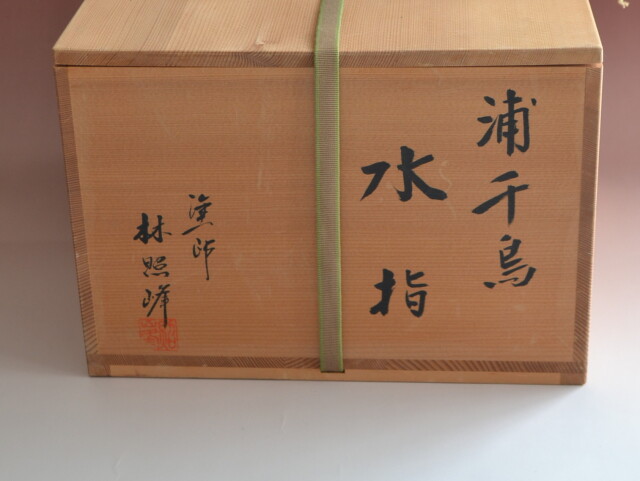 浦千鳥
水指
塗師
林照峰